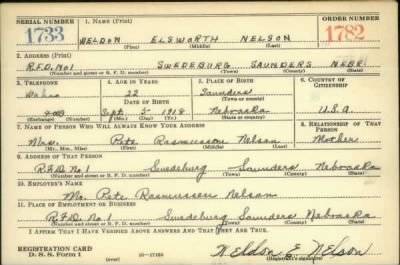 SERIAL NUMBER 1. NAME (Print) ORDER NUMBER
1733 WELDON ELSWORTH NELSON 1782
(First) (Middle) (Last)
2. ADDRESS (Print)
R.F.D. No 1 SWEDEBURG SAUNDERS NEBR
(Number and street or R. F. D. number) (Town) (County) (State)
3. TELEPHONE 4. AGE IN YEARS 5. PLACE OF BIRTH 6. COUNTRY OF CITIZENSHIP
Wahoo 22 Saunders
DATE OF BIRTH (Town or county)
Sept 5- 1918 Nebraska U.S.A
(Exchange) (Number) (Mo.) (Day) (Yr.) (State or country)
7. NAME OF PERSON WHO WILL ALWAYS KNOW YOUR ADDRESS 8. RELATIONSHIP OF THAT PERSON
Mrs. Pete Rasmussen Nelson Mother
(Mr., Mrs., Miss) (First) (Middle) (Last)
9. ADDRESS OF THAT PERSON
R.F.D. No. 1 Swedeburg Saunders Nebraska
(Number and street or R. F. D. number) (Town) (County) (State)
10. EMPLOYER'S NAME
Mr. Pete Rasmussen Nelson
11. PLACE OF EMPLOYMENT OR BUSINESS
R.F.D. No. 1 Swedeburg Saunders Nebraska
(Number and street or R. F. D. number) (Town) (County) (State)
I AFFIRM THAT I HAVE VERIFIED ABOVE ANSWERS AND THAT THEY ARE TRUE.
REGISTRATION CARD
D. S. S. Form 1 (over) Weldon E. Nelson
(Registrant's signature)